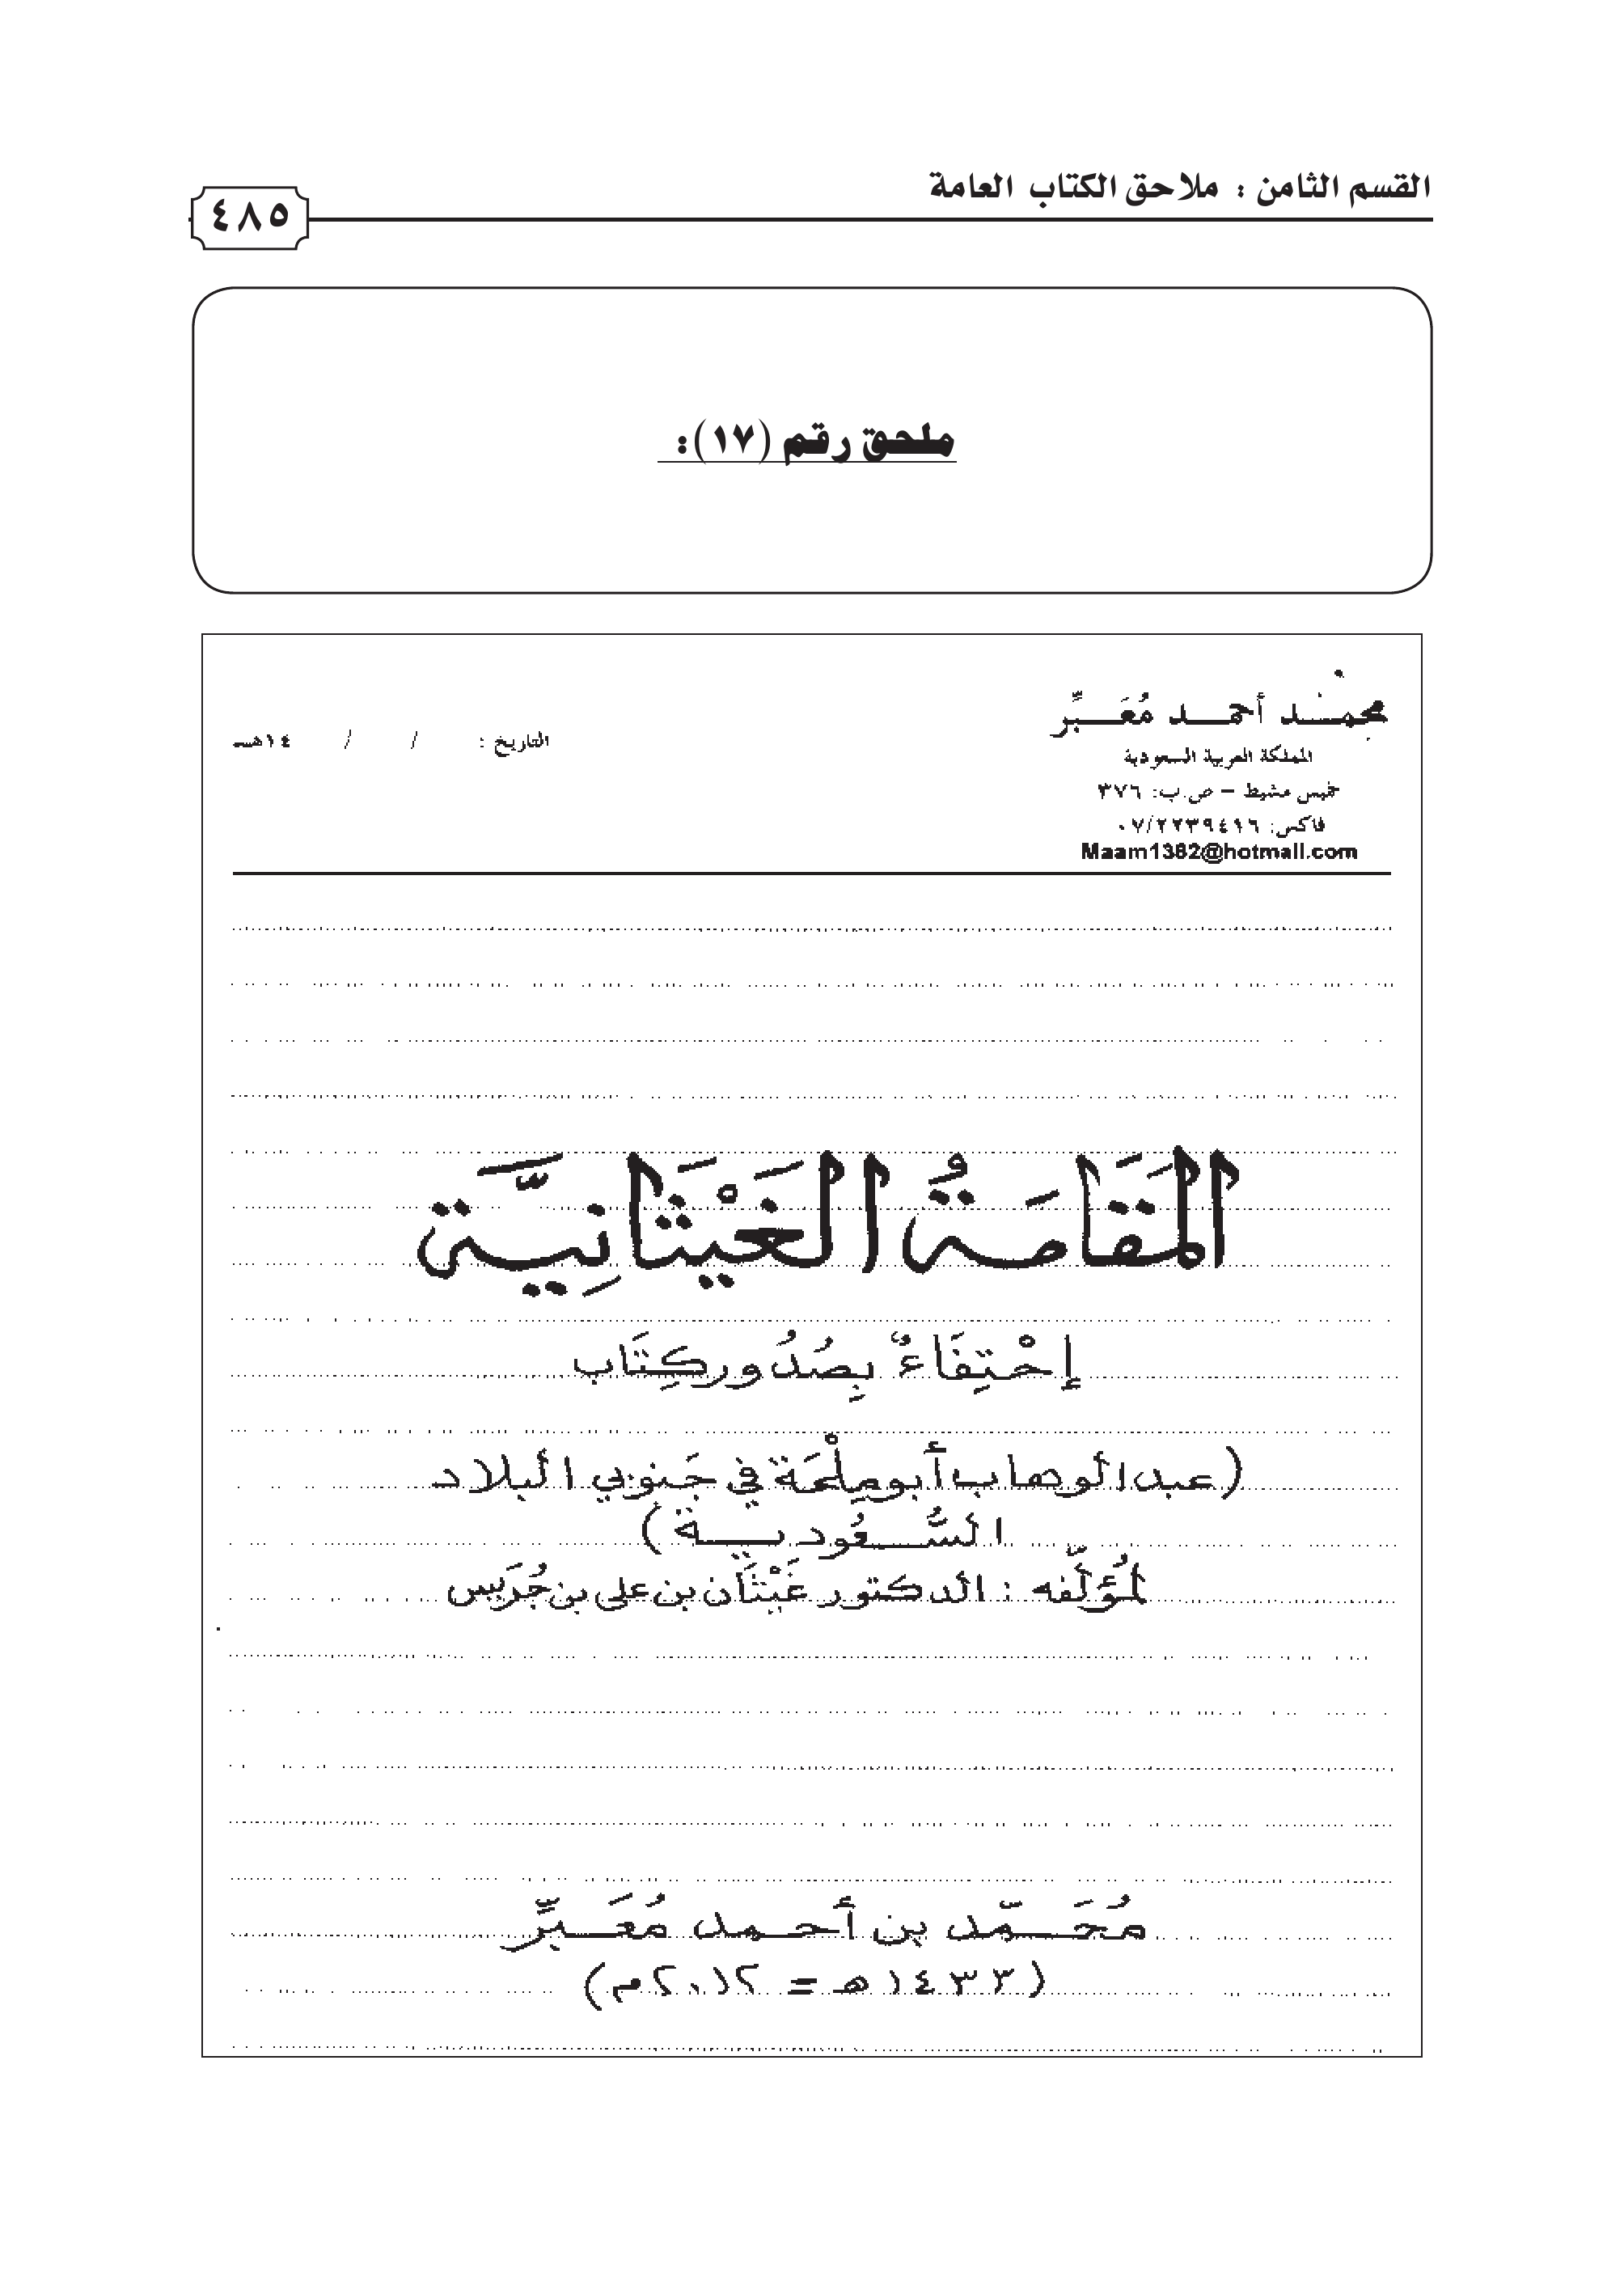 القسم الثامن : ملاحق الكتاب العامة
٤٨٥
ملحق رقم (١٧):
محمد أحمد مُعَبِّر
المملكة العربية السعودية
خميس مشيط – ص.ب: ٣٧٦
فاكس: ٠٧/٢٢٣٩٤١٦
Maam1382@hotmail.com
التاريخ : / / ١٤هـ
المَقَامَةُ الغَيْثَانِيَّة
إحْتِفَاءٌ بِصُدُور كِتَاب
(عبد الوهاب أبو مِلْحَة في جَنوبي البلاد
السُّعُودية)
لمُؤلِّفه : الدكتور غَيْثَان بن علي بن جُرَيس
مُحَمّد بن أحمد مُعَبِّر
(١٤٣٣هـ = ٢٠١٢م)